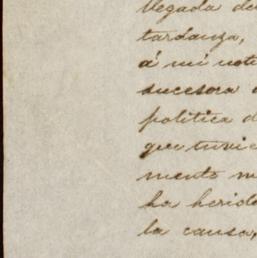 llegada de
tardanza,
á mi noti
sucesora
politica d
que tuvie
mente m
ha herido
la causa,